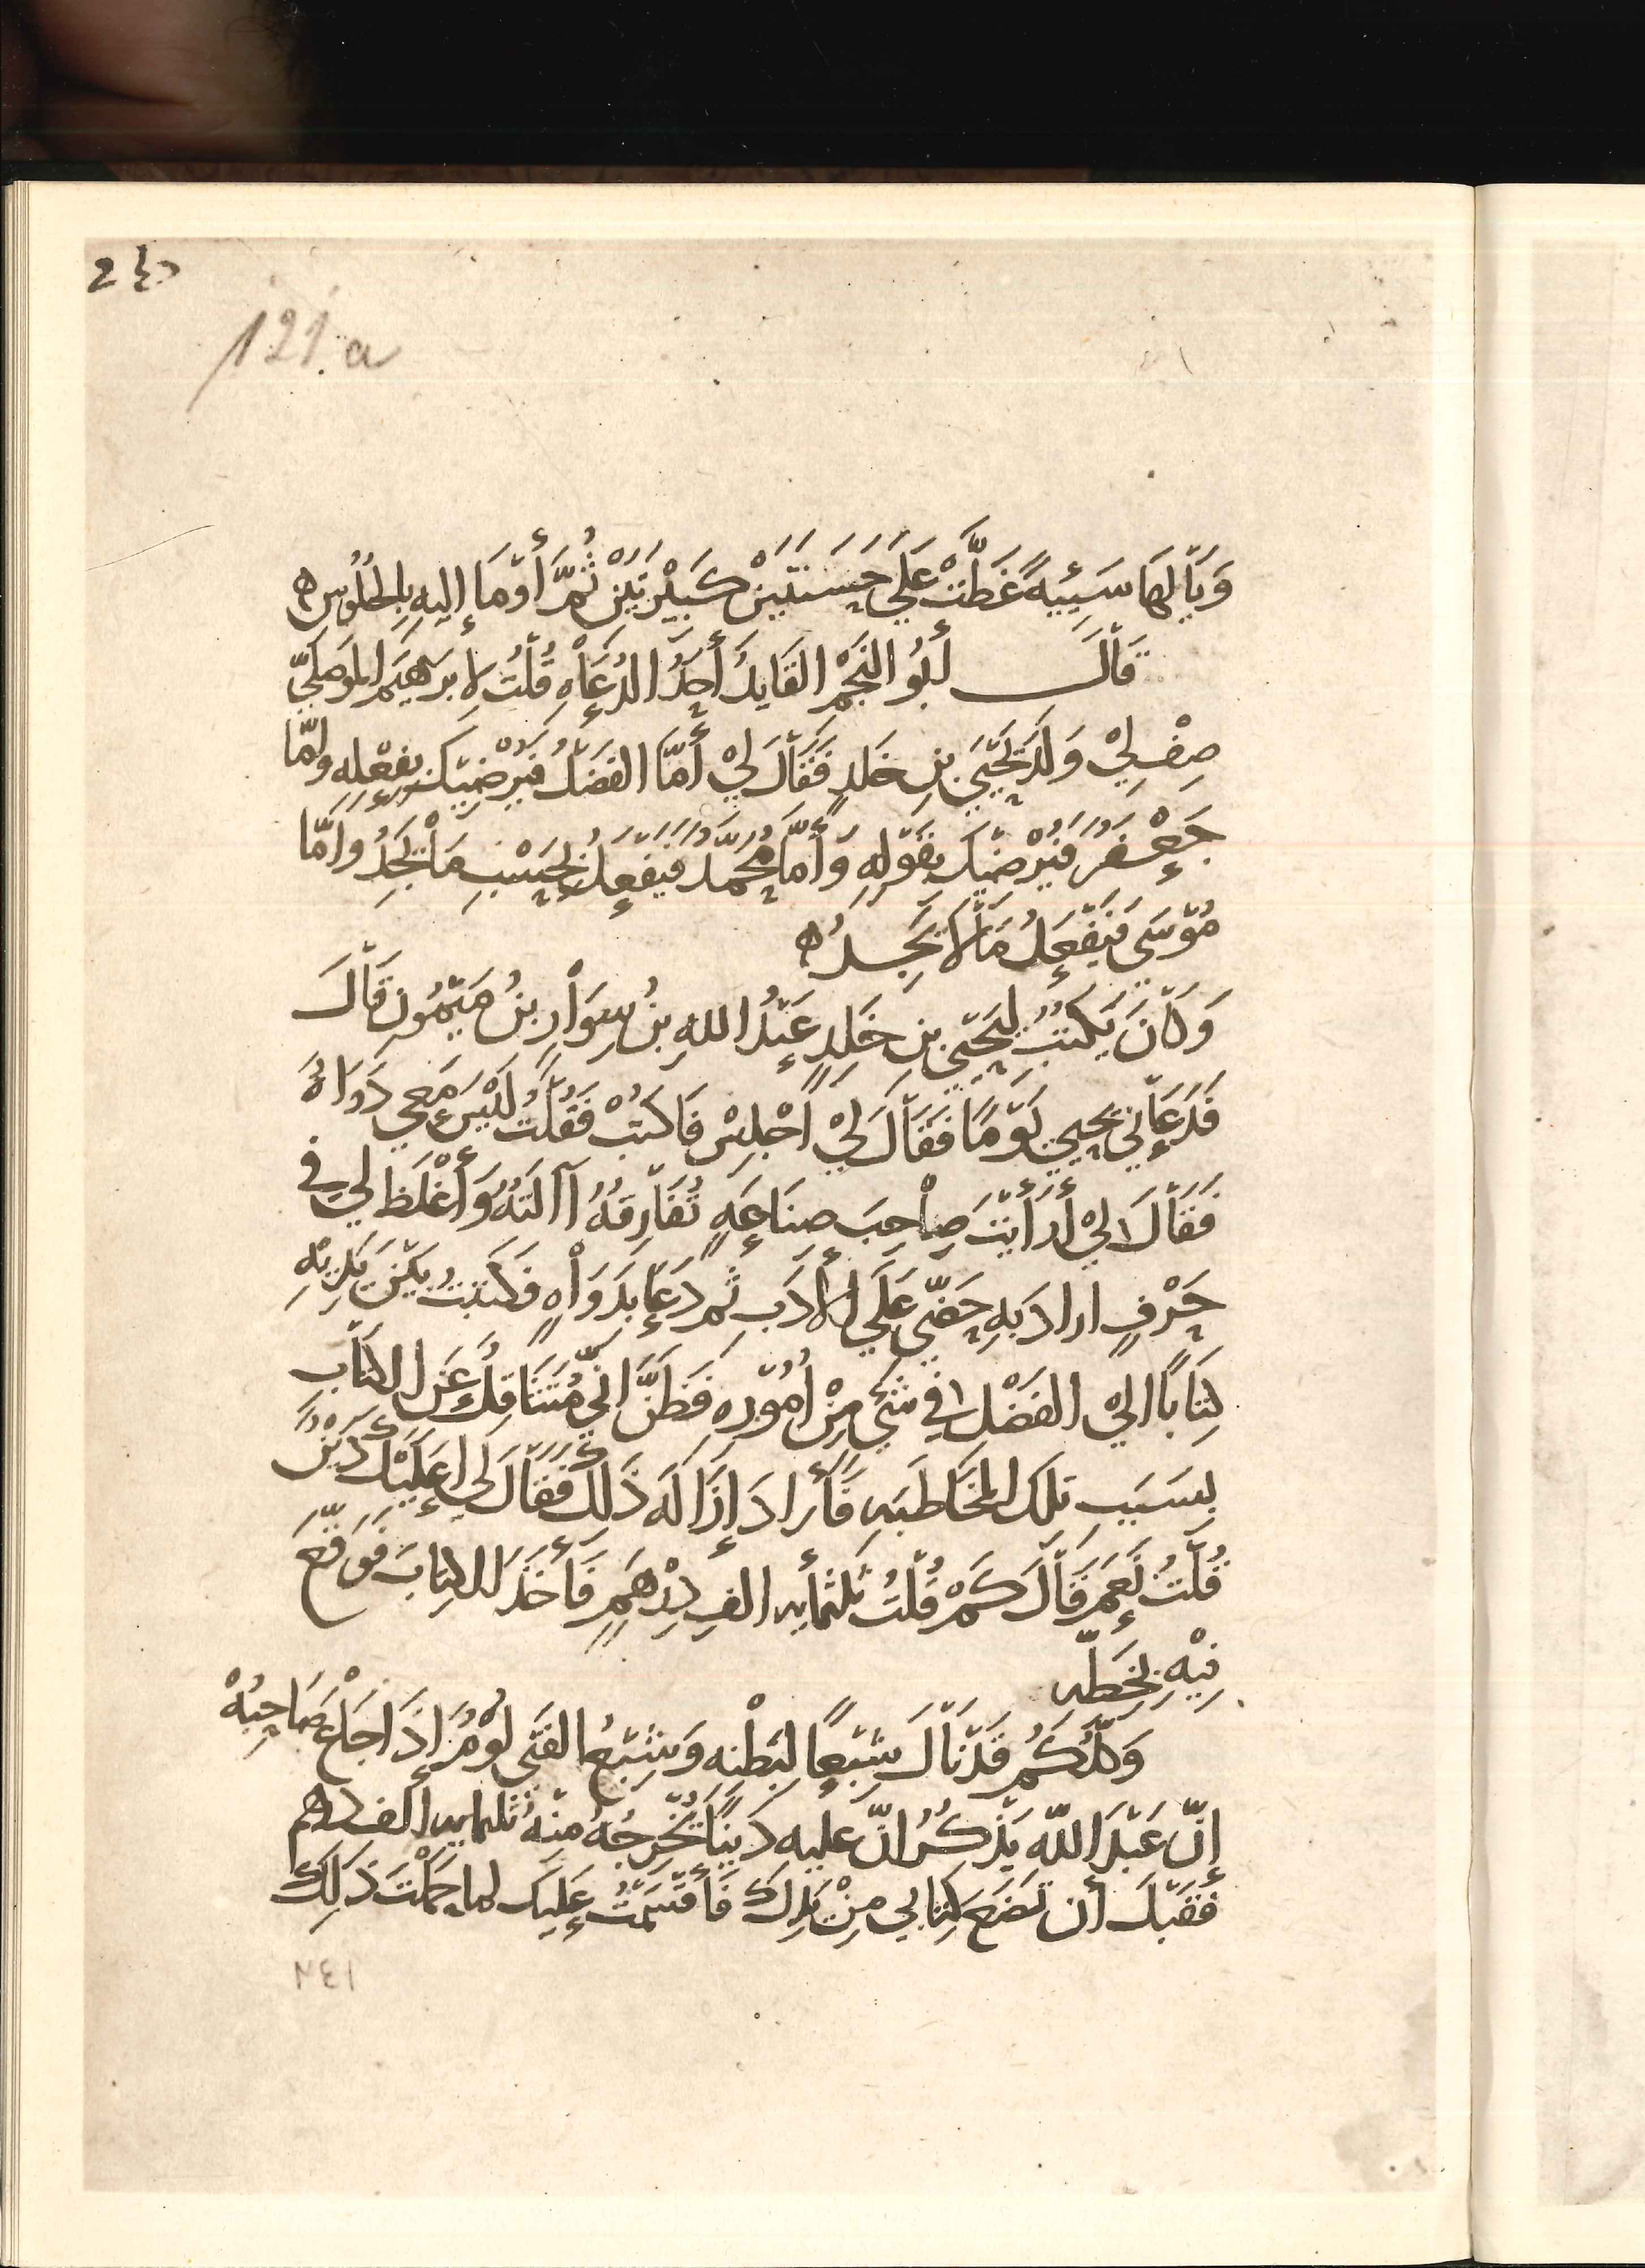 24
121.a
وَيَا لَهَا سَيِّئِيةً غَطَّتْ عَلَي حَسَنَتَيْنْ كَبِيْرتَيْنْ ثُمَّ أَوْمَا إِليهِ بِالجُلُوُسِ ه
قَالَ أبُو النَجْمِ القَايدُ أَحَدُ الدُعَاْهِ قُلْتُ لإبرَهِيَم المَوصَلِيّ
صِفْ لِيْ وَلَدَ يَحْيَي بنِ خَلدٍ فَقَالَ لِيْ أَمَّا الفَضلُ فَيُرْضِيْكَ بفِعْلِهِ وامّا
جَعْفَرُ فَيُرْضِيْكَ بِقَولِهِ وَأَمَّا مُحَمَّد فَيَفعَلُ بحَسْبِ مَاْ يَجِدُ وَامَّا
مُوْسَي فَيَفْعَلُ مَاْ لَا يَجِدُ ه
وَكَانَ يَكتُبُ ليَحيَي بنِ خَلِدٍ عَبْدُ اللهِ بنُ سِوَاْرِ بنُ مَيْمُونِ قَاْلَ
فَدَعَاْنِي يحيي يَوْمًا فَقَاْلَ لِيْ اَجْلِسْ فَاكتبْ فَقُلْتُ لَيْسَ مَعِي دَوَاهٌ
فَقَاْلَ لِيْ أَرَأَيْتَ صِاْحِبَ صِنَاعَهٍ تُفَاْرِقهُ آالَتهُ وَأَغْلَظ لي في
حَرْفٍ اراد َبهِ حَضّي عَلَي الأدَبِ ثم دَعَا بِدَوَاْهٍ فَكتبتُ بَيْنَ يَدَيْهِ
كِتَابًا اليْ الفَضْلِ في شَيْ مِنْ أُمُوْرِهِ فَظَنَّ انِّي مُتَثَاقِلُ عَنِ الكتَابِ
بسَبَبِ تلكَ المخَاطَبهِ فَأَرادَ إِزَالَه ذَلِكَ فَقَالَ لي اعَلَيْكَ دَيْنٌ
قُلْتُ نَعَم قَاْلَ كَمْ قُلْتُ ثَلثمأيه الفِ دِرْهَمٍ فَأَخَذَ الكِتابَ فَوَقّعَ
فِيْهِ بِخَطِّه
وَكُلُّكُم قَدْ نَاْلَ شِبْعًا لبَطْنه وَشِبْعُ الفَتَى لُوْمٌ إِذَا جَاْعَ صَاحِبُهْ
إِنَّ عَبْدَ اللَّه يَذْكُرُ انّ عليهِ دَيْنًا يُخْرجُهُ مِنْهُ ثلثمايه ألف درهم
فَقَبْلَ أن تَضَعَ كِتَابي مِنْ يَدِكَ فَأَقسَمْتُ عَلَيكَ لما حَمَلْتَ ذَلِكَ
٢٤١